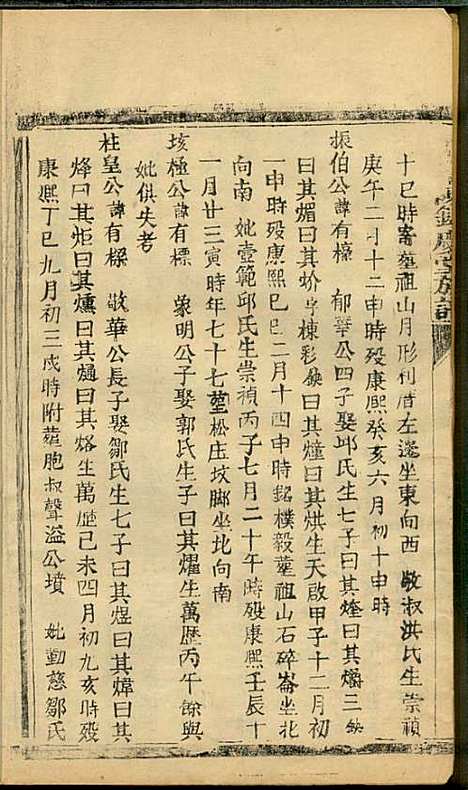 十巳時寄葬祖山月形利后左邊坐東向西 敬淑洪氏生崇禎
庚午二月十二申時歿康熙癸亥六月初十申時
振伯公諱有檺 郁華公四子娶邱氏生七子曰其煃曰其爝三缺
曰其媚曰其蚧字棟彩缺曰其燑曰其烘生天啟甲子十二月初
一申時歿康熙己巳二月十四申時銘樸毅葬祖山石碎崙坐北
向南 妣壹範邱氏生崇禎丙子七月二十午時歿康熙壬辰十
一月廿三寅時年七十七葬松庄坟脚坐北向南
垓極公諱有檯 象明公子娶郭氏生子曰其燿生萬歷丙午餘與
妣俱失考
柱皇公諱有樑 敬華公長子娶鄒氏生七子曰其煜曰其煒曰其
烽曰其炬曰其燻曰其熥曰其烙生萬歷己未四月初九亥時歿
康熙丁巳九月初三戌時附葬胞叔聲溢公墳 妣勤慈鄒氏